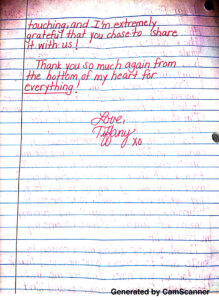 touching, and I'm extremely
grateful that you chose to share
it with us!
Thank you so much again from
the bottom of my heart for
everything!
Love,
Tiffany
xo
Generated by CamScanner